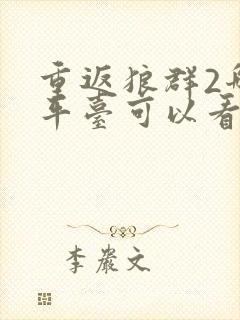 重返狼群2
平臺可以看
李嚴文